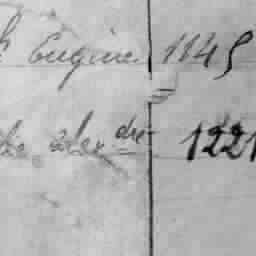 Eugène 1145
Alex dre 1221